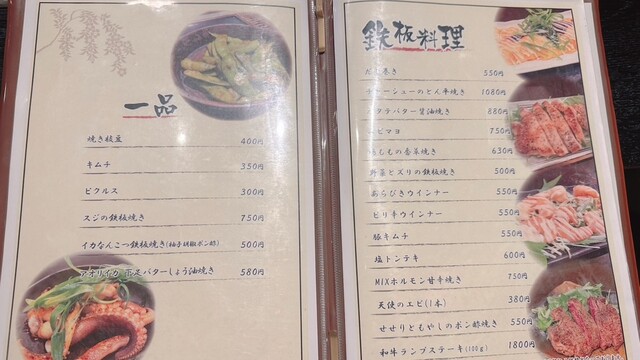 一品
焼き枝豆 400円
キムチ 350円
ピクルス 300円
スジの鉄板焼き 750円
イカなんこつ鉄板焼き(柚子胡椒ポン酢) 500円
アオリイカ 下足バターしょう油焼き 580円
鉄板料理
550円
チャーシューのとん平焼き 1080円
ホタテバター醤油焼き 880円
エビマヨ 750円
鶏ももの香草焼き 630円
野菜とズリの鉄板焼き 500円
あらびきウインナー 550円
ピリ辛ウインナー 550円
豚キムチ 550円
塩トンテキ 600円
MIXホルモン甘辛焼き 750円
天使のエビ(1本) 380円
せせりともやしのポン酢焼き 550円
和牛ランプステーキ(100g) 1800円